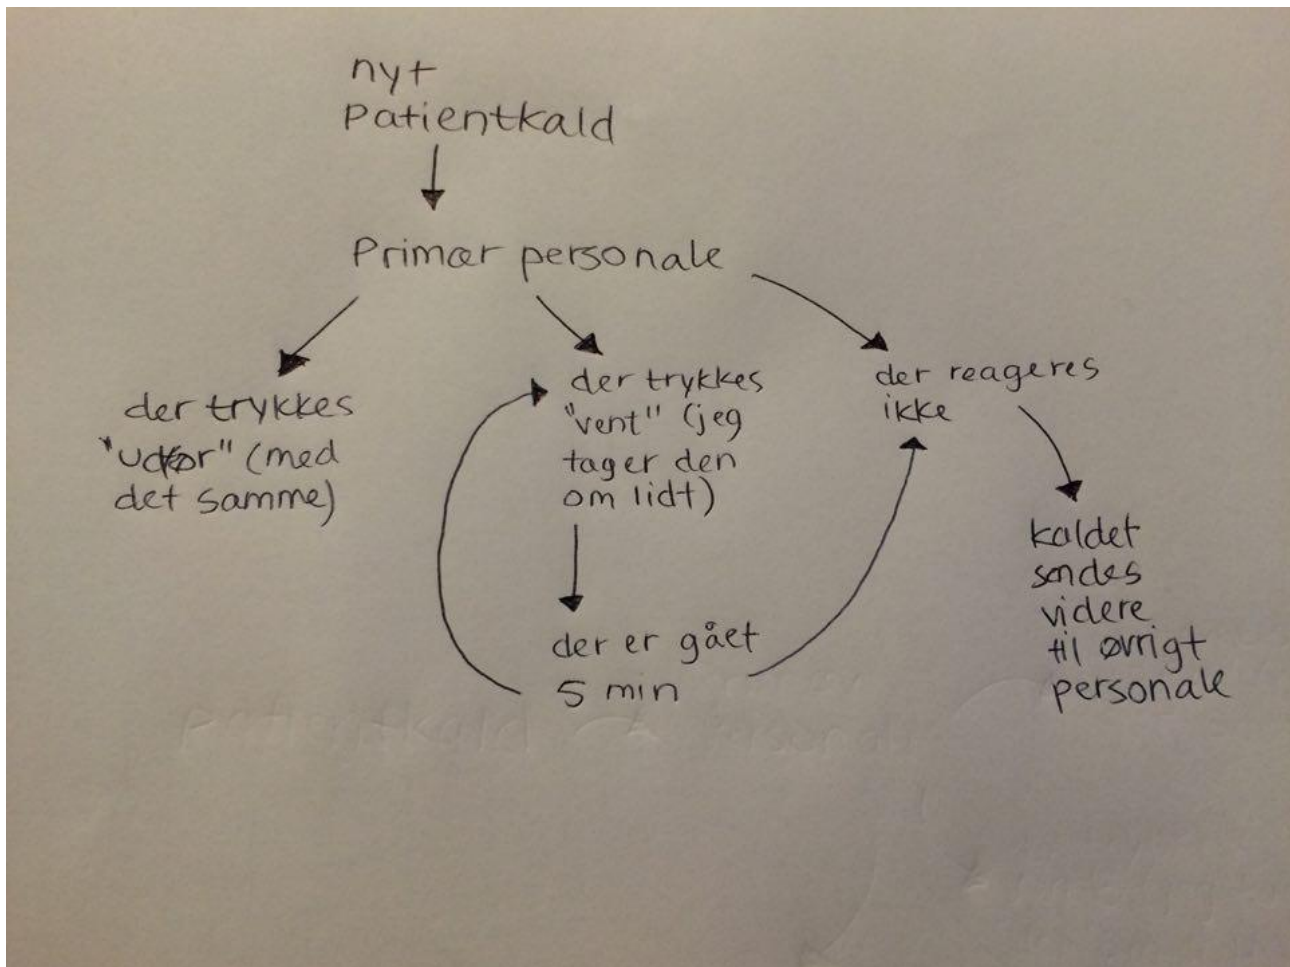 nyt
Patientkald
Primær personale
der trykkes
"udfør" (med
det samme)
der trykkes
"vent" (jeg
tager den
om lidt)
der er gået
5 min
der reageres
ikke
kaldet
sendes
videre
til øvrigt
personale